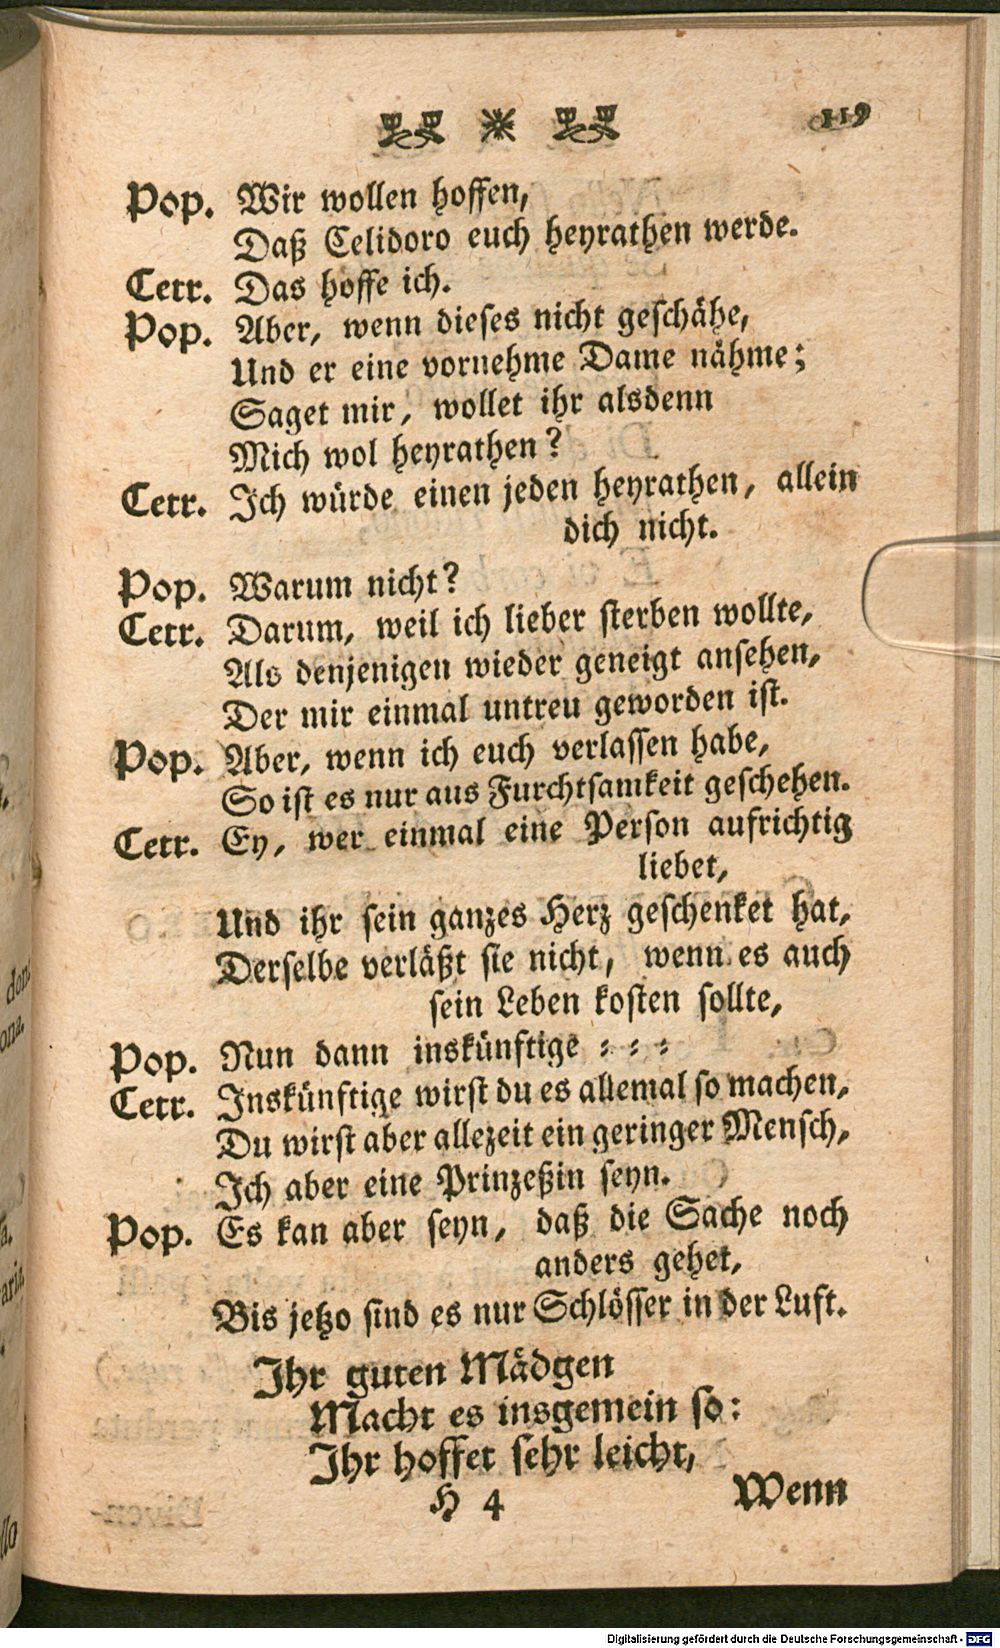 119
Pop. Wir wollen hoffen,
Daß Celidoro euch heyrathen werde.
Cetr. Das hoffe ich.
Pop. Aber, wenn dieses nicht geschähe,
Und er eine vornehme Dame nähme;
Saget mir, wollet ihr alsdenn
Mich wol heyrathen?
Cetr. Ich würde einen jeden heyrathen, allein
dich nicht.
Pop. Warum nicht?
Cetr. Darum, weil ich lieber sterben wollte,
Als denjenigen wieder geneigt ansehen,
Der mir einmal untreu geworden ist.
Pop. Aber, wenn ich euch verlassen habe,
So ist es nur aus Furchtsamkeit geschehen.
Cetr. Ey, wer einmal eine Person aufrichtig
liebet,
Und ihr sein ganzes Herz geschenket hat,
Derselbe verläßt sie nicht, wenn es auch
sein Leben kosten sollte,
Pop. Nun dann inskünftige = = =
Cetr. Inskünftige wirst du es allemal so machen,
Du wirst aber allezeit ein geringer Mensch,
Ich aber eine Prinzeßin seyn.
Pop. Es kan aber seyn, daß die Sache noch
anders gehet,
Bis jetzo sind es nur Schlösser in der Luft.
Ihr guten Mädgen
Macht es insgemein so:
Ihr hoffet sehr leicht,
H 4 Wenn
Digitalisierung gefördert durch die Deutsche Forschungsgemeinschaft - DFG